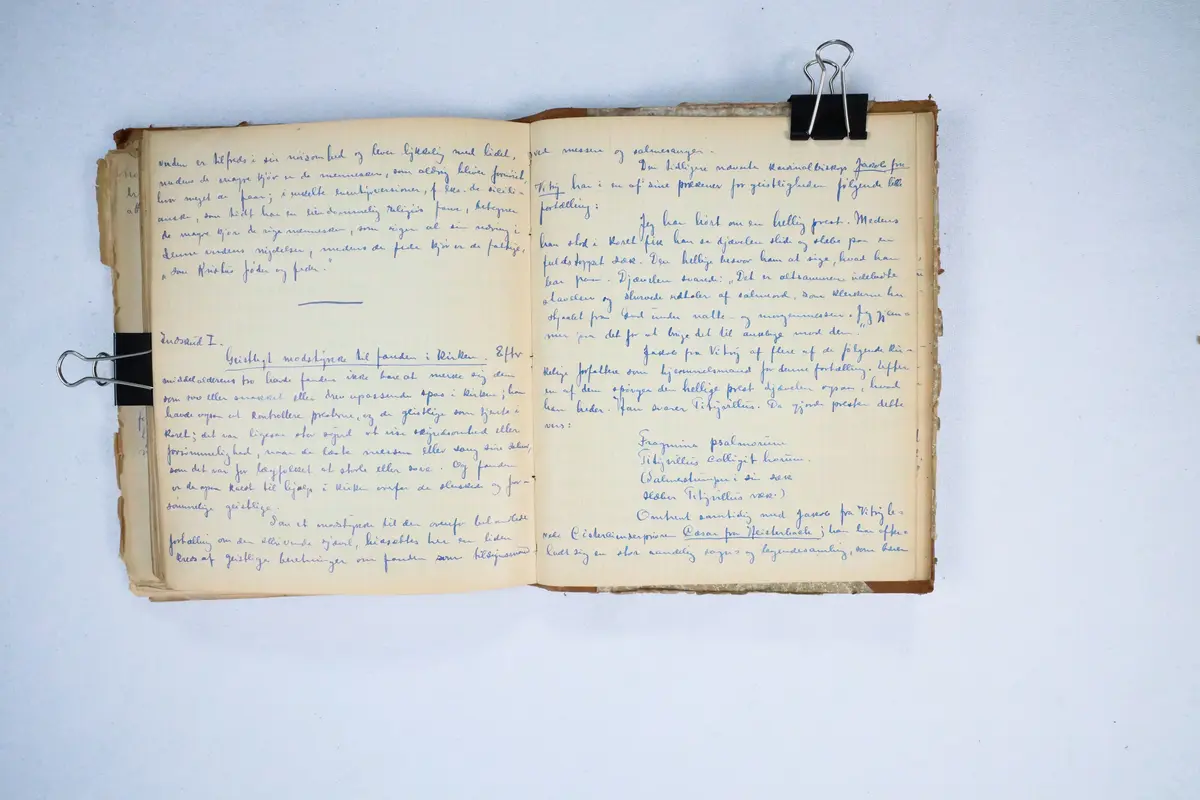 verden er tilfreds i sin nøisomhed og lever lykkelig med lidet,
medens de magre kjør er de mennesker, som aldrig bliver fornøiet,
hvor meget de faar; i enkelte eventyrversioner, f. eks. de sicili-
anske, som helst har en eiendommelig religiøs farve, betegner
de magre kjør de rige mennesker, som siger al sin næring i
denne verdens nydelser, medens de fede kjør er de fattige,
"som Kristus føder og feder."
Indskud I.
Geistligt modstykke til fanden i kirken. Efter
middelalderens tro havde fanden ikke bare at merke sig dem
som sov eller snakket eller drev upassende spas i kirken; han
havde ogsaa at kontrollere prestene, og de geistlige som tjente i
koret; det var ligesaa stor synd at vise skjødesløshed eller
forsømmelighed, naar de læste messen eller sang sine salmer,
som det var for lægfolket at storle eller sove. Og fanden
er da ogsaa kaldt til hjælp i kirken overfor de slurvede og for-
sømmelige geistlige.
Som et modstykke til den ovenfor behandlede
fortælling om den skrivende djævel, hidsættes her en liden
kreds af geistlige beretninger om fanden som tilsynsmand
ved messen og salmesangen.
Den tidligere nævnte kardinalbiskop Jacob fra
Vitry har i en af sine prækener for geistligheden følgende lille
fortælling:
Jeg har hørt om en hellig prest. Medens
han stod i koret fik han se djævelen slid og slæbe paa en
fuldstoppet sæk. Den hellige besvor ham at sige, hvad han
bar paa. Djævelen svared: "Det er altsammen udeladte
stavelser og slurvede udtaler af salmeord, som klerkerne har
stjaalet fra Gud under natte- og morgenmessen. Jeg gjem-
mer paa det for at bruge det til anklage mod dem."
Jakob fra Vitry af flere af de følgende kir-
kelige forfattere som hjemmelsmand for denne fortælling. Efter
en af dem spørger den hellige prest djævelen ogsaa, hvad
han heder. Han svarer Titivillus. Da gjorde presten dette
vers:
Fragmina psalmorum
Titivillus colligit horum.
(Salmestumper i sin sæk
slæber Titivillus væk.)
Omtrent samtidig med Jakob fra Vitry le-
vede Cistercienserprioren Cæsar fra Heisterbach; han har efter-
ladt sig en stor aandelig sagn- og legendesamling, som bærer